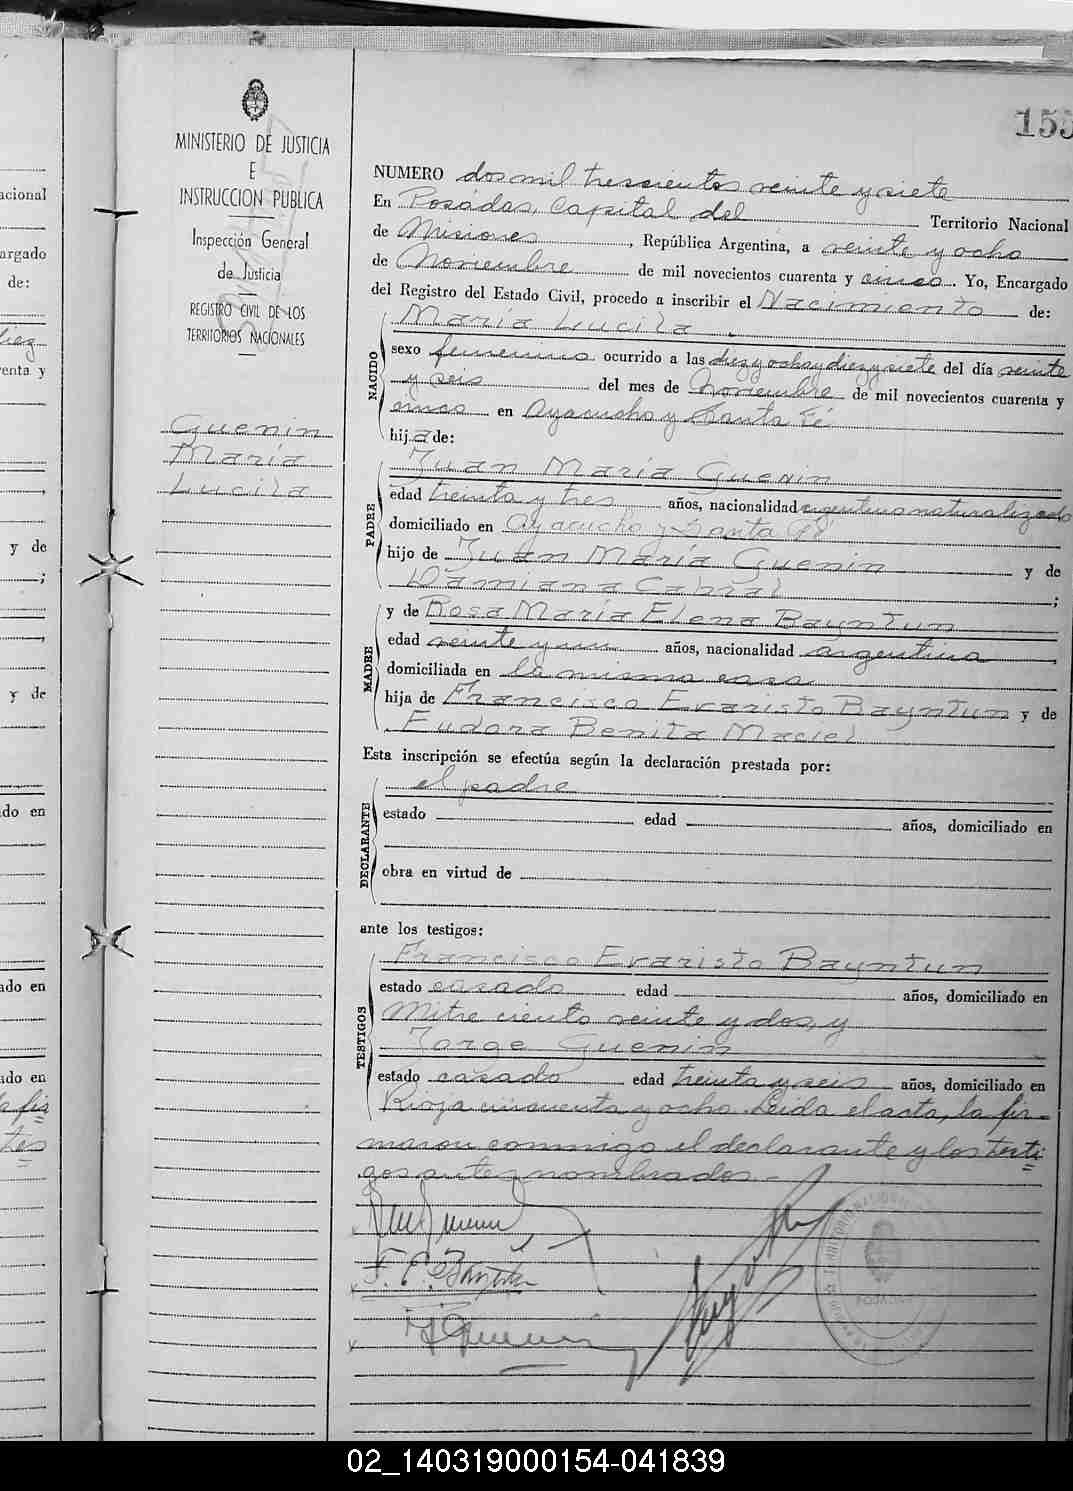 acional
argado
de:
diez
enta y
y de
;
y de
do en
do en
do en
la fir
tes
MINISTERIO DE JUSTICIA
E
INSTRUCCION PUBLICA
Inspección General
de Justicia
REGISTRO CIVIL DE LOS
TERRITORIOS NACIONALES
Guenin
María
Lucila
155
NUMERO dos mil trescientos veinte y siete
En Posadas, Capital del Territorio Nacional
de Misiones, República Argentina, a veinte y ocho
de Noviembre de mil novecientos cuarenta y cinco. Yo, Encargado
del Registro del Estado Civil, procedo a inscribir el Nacimiento de:
NACIDO
María Lucila
sexo femenino ocurrido a las diez y ocho y diez y siete del día veinte
y seis del mes de Noviembre de mil novecientos cuarenta y
cinco en Ayacucho y Santa Fé
hija de:
PADRE
Juan María Guenin
edad treinta y tres años, nacionalidad argentino naturalizado
domiciliado en Ayacucho y Santa Fé
hijo de Juan María Guenin y de
Damiana Cabral ;
MADRE
y de Rosa María Elena Bayntun
edad veinte y un años, nacionalidad argentina
domiciliada en la misma casa
hija de Francisco Evaristo Bayntun y de
Eudora Benita Maciel
Esta inscripción se efectúa según la declaración prestada por:
DECLARANTE
el padre
estado edad años, domiciliado en
obra en virtud de
ante los testigos:
TESTIGOS
Francisco Evaristo Bayntun
estado casado edad años, domiciliado en
Mitre ciento veinte y dos, y
Jorge Guenin
estado casado edad treinta y seis años, domiciliado en
Rioja cincuenta y ocho. Leida el acta, la fir-
maron conmigo el declarante y los testi=
gos antes nombrados.-
F. E. Bayntun
JGuenin
POSADAS
02_140319000154-041839